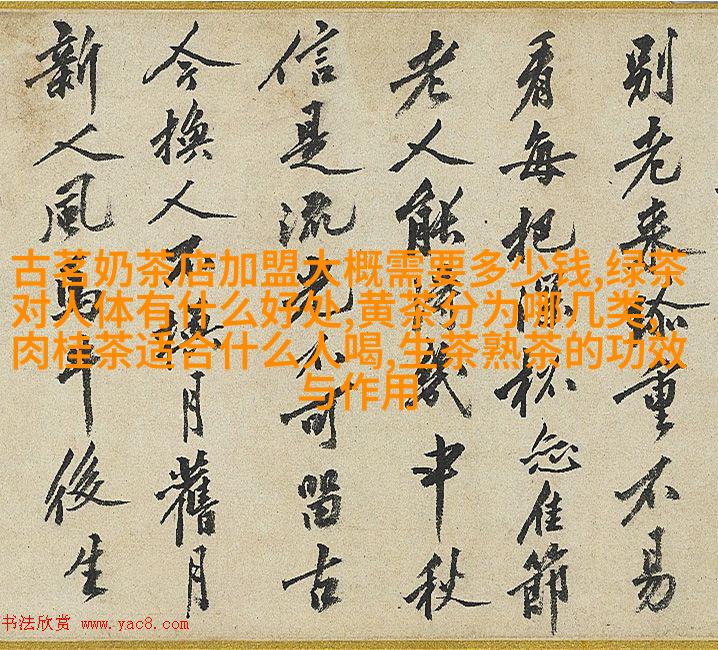 別老來重不易
看每把深杯佳節
老人能得幾中秋
信是流光不可留古
今換人不換月舊月
新人風馬牛後生
古茗奶茶店加盟大概需要多少钱,绿茶
对人体有什么好处,黄茶分为哪几类,
肉桂茶适合什么人喝,生茶熟茶的功效
与作用
书法欣赏 www.yac8.com